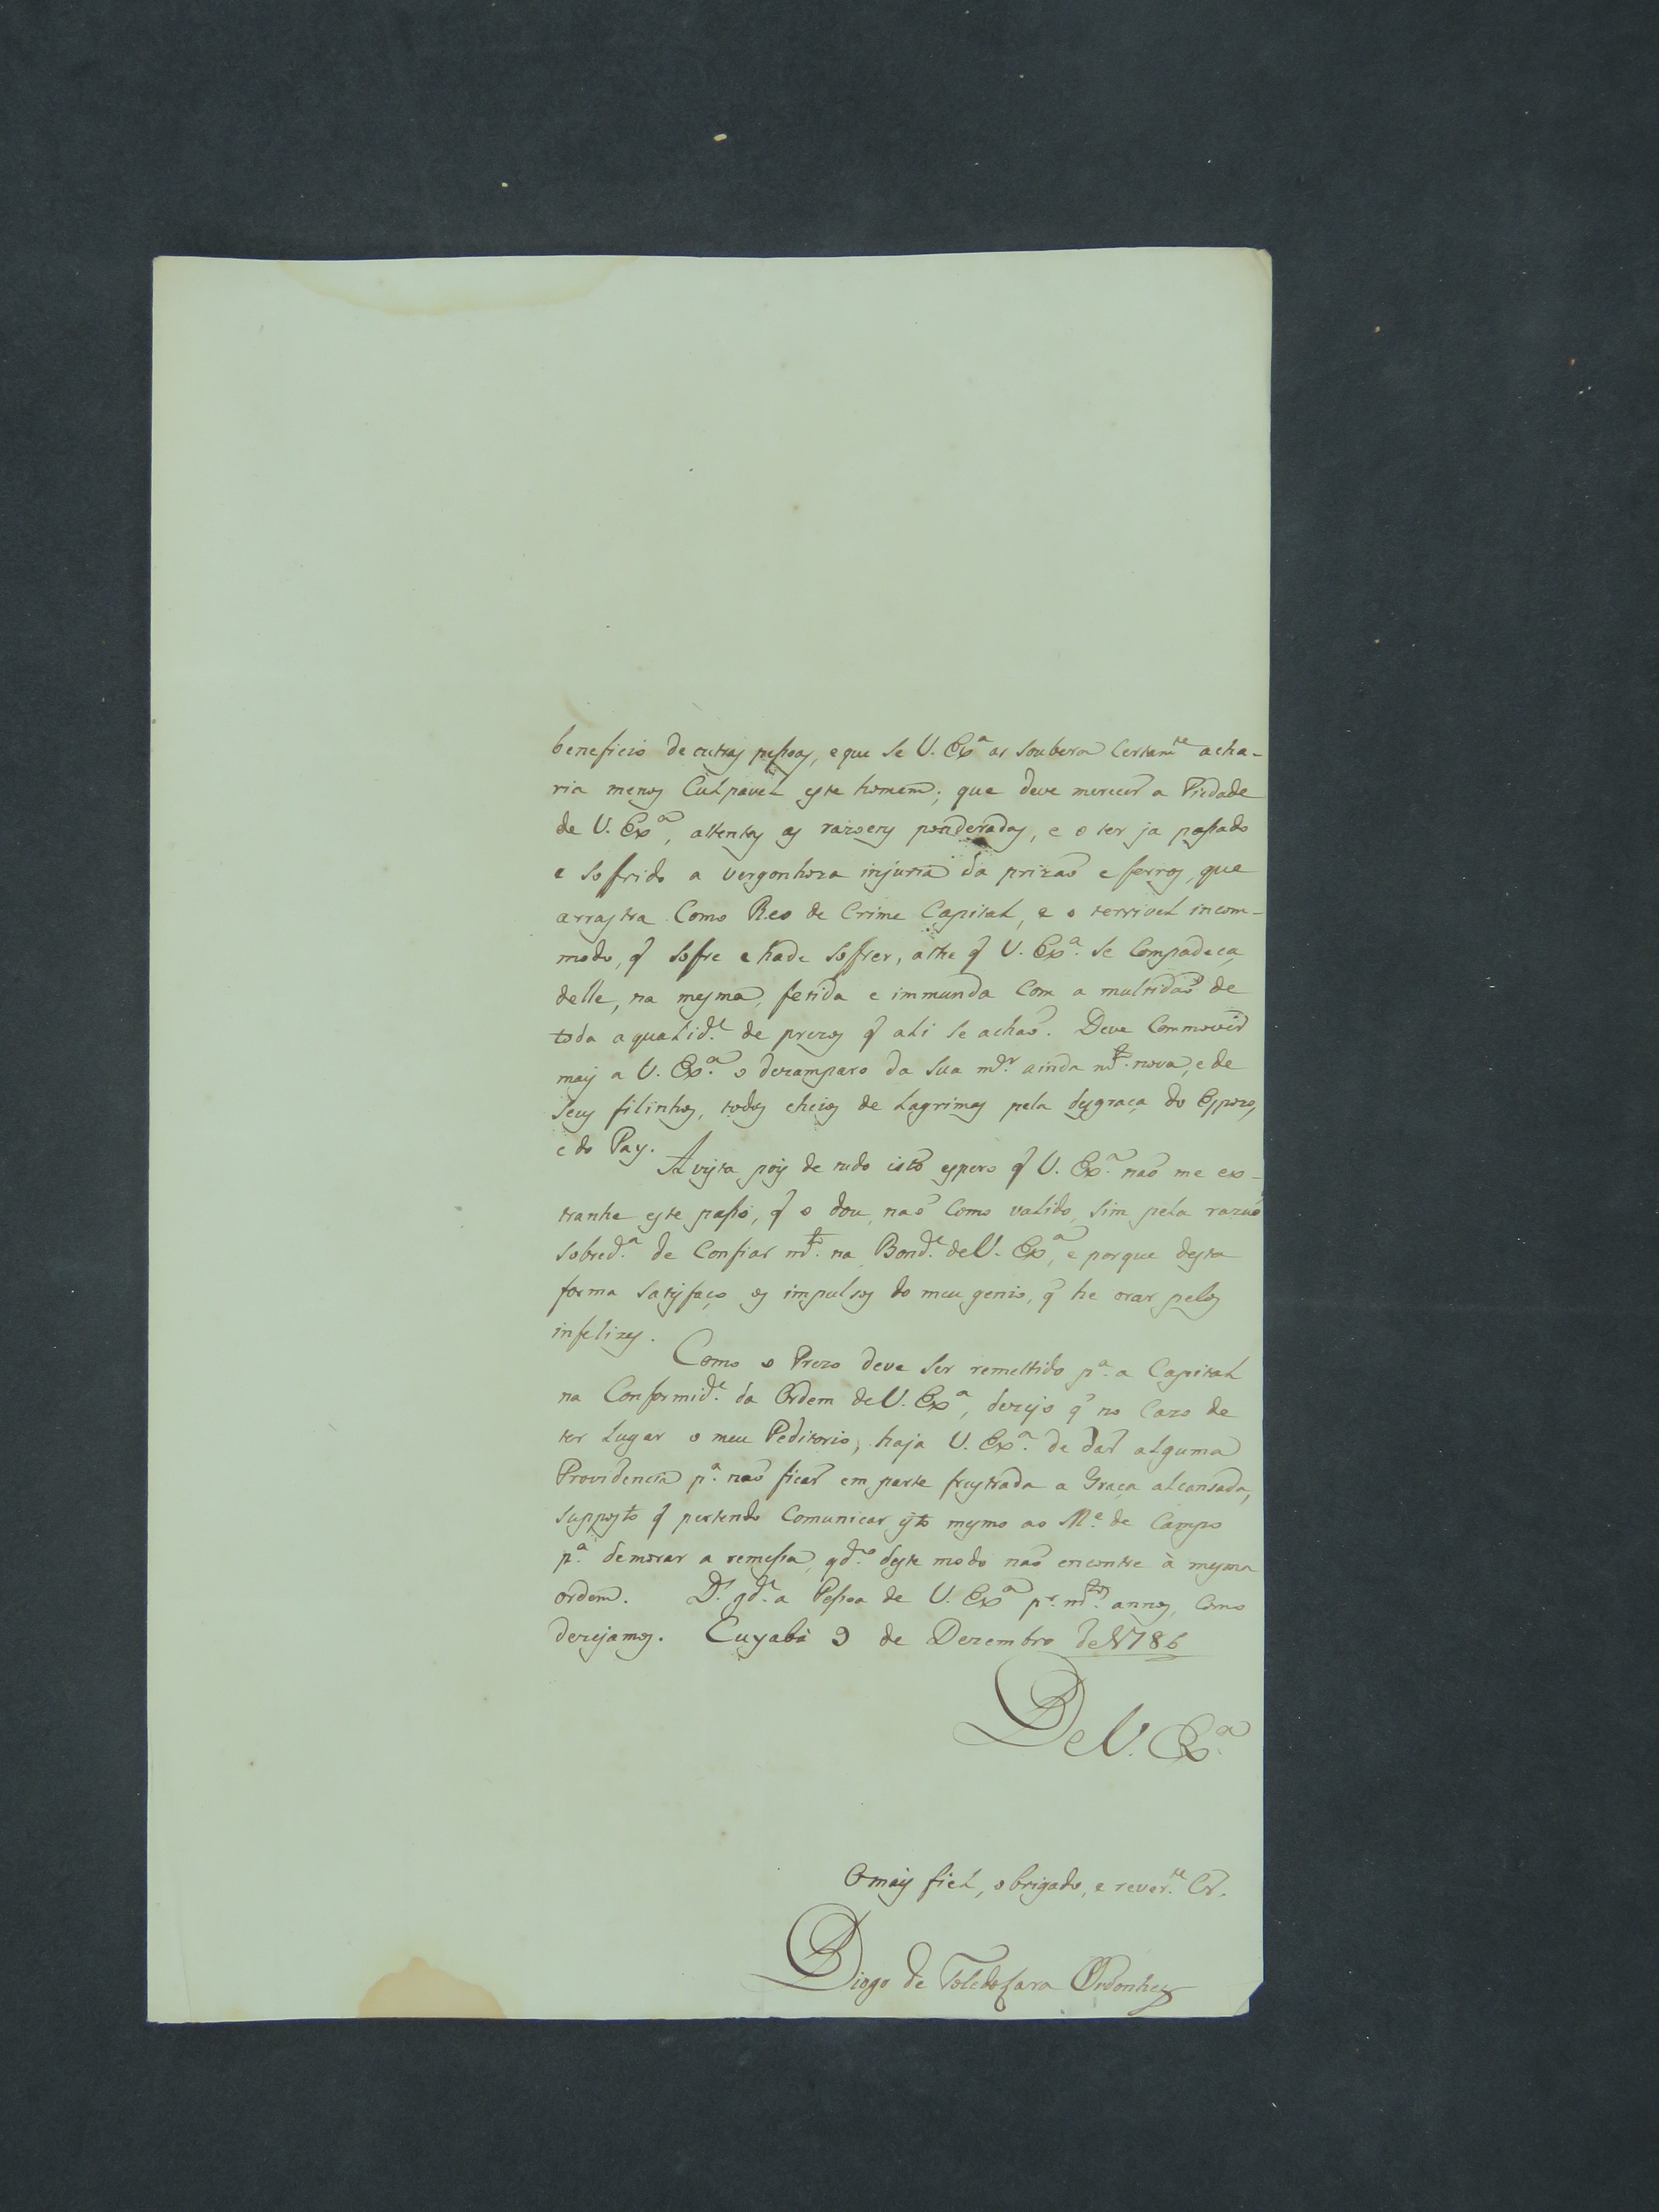 beneficio de outras pessoas, e que se V. Exª as soubera Certamte acha-
ria menos Culpavel este homem; que deve merecer a Piedade
de V. Exª, attentas as razoens ponderadas, e o ter ja passado
e sofrido a vergonhoza injuria da prizaõ e ferros, que
arrastra Como Reo de Crime Capital, e o terrivel incom-
modo, q̃ sofre e hade sofrer, athe q̃ V. Exª. se Compadeca
delle, na mesma, fetida e immunda Com a multidaõ de
toda aqualide. de prezos q̃ ali se achaõ. Deve Commover
mais a V. Exª. o dezamparo da sua mer. ainda mto. nova, e de
seus filinhos, todos cheios de Lagrimas pela desgraça do Espozo,
e do Pay.
Avista pois de tudo isto espero q̃ V. Exª. naõ me ex-
tranhe este passo, q̃ o dou, naõ Como valido, sim pela razaõ
sobreda. de Confiar mto. na Bonde. de V. Exª, e porque desta
forma satisfaço os impulsos do meu genio, q̃ he orar pelos
infelizes.
Como o Prezo deve ser remettido pª. a Capital
na Conformide. da Ordem de V. Exª, dezejo q̃ no Cazo de
ter Lugar o meu Peditorio, haja V. Exª. de dar alguma
Providencia pª. naõ ficar em parte frustrada a Graça alcansada,
supposto q̃ pertendo Comunicar isto mesmo ao Me. de Campo
pª. demorar a remessa, qdo. deste modo naõ encontre à mesma
ordem. Ds. gde. a Pessoa de V. Exª pr. mtos. annos, Como
dezejamos. Cuyabá 9 de Dezembro de 1786
De V. Exª.
O mais fiel, obrigado, e reverte. Cr.
Diogo de Toledo Lara Ordonhes